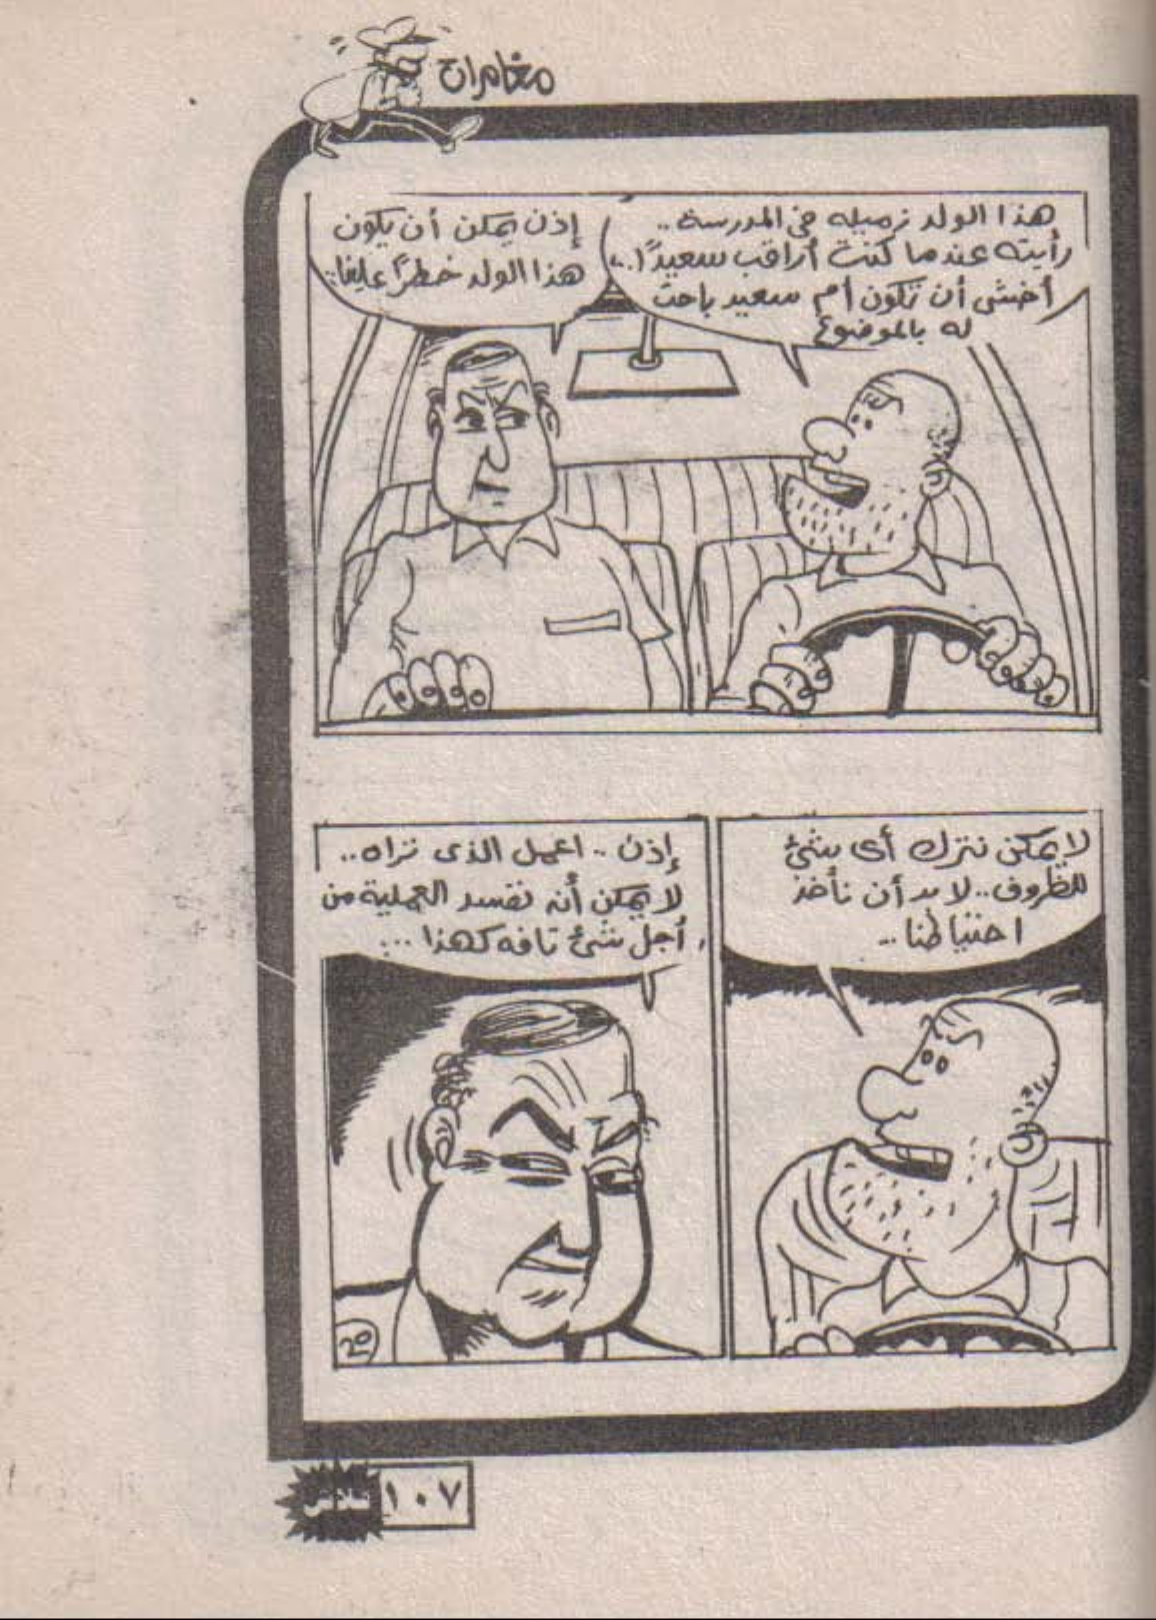 مغامرات
هذا الولد زميله فى المدرسة..
رأيته عندما كنت أراقب سعيدًا..
أخشى أن تكون أم سعيد باحت
له بالموضوع
إذن يمكن أن يكون
هذا الولد خطرًا علينا..
لا يمكن نترك أى شئ
للظروف.. لا بد أن نأخذ
احتياطنا..
إذن.. اعمل الذى تراه..
لا يمكن أنه نفسد العملية من
أجل شئ تافه كهذا...
20
١٠٧
فلاش